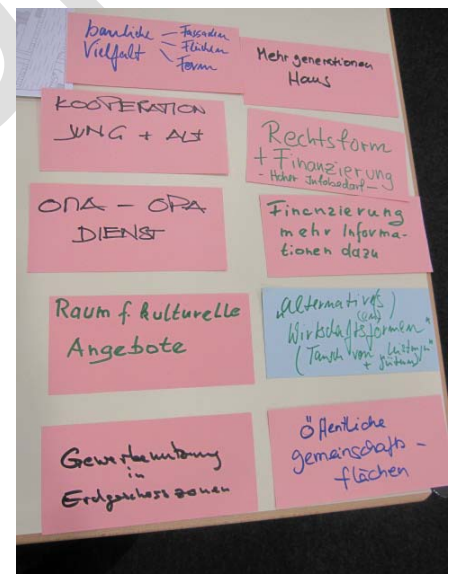 bauliche – Fassaden
Vielfalt – Flächen
Formen
Mehrgenerationen
Haus
KOOPERATION
JUNG + ALT
Rechtsform
+ Finanzierung
- Hoher Infobedarf -
OMA - OPA
DIENST
Finanzierung
mehr Informa-
tionen dazu
Raum f. kulturelle
Angebote
"Alternative(s)
Wirtschaftsformen"
(Tausch von Leistungen
+ Gütern)
Gewerbenutzung
in
Erdgeschosszonen
Öffentliche
gemeinschafts-
flächen